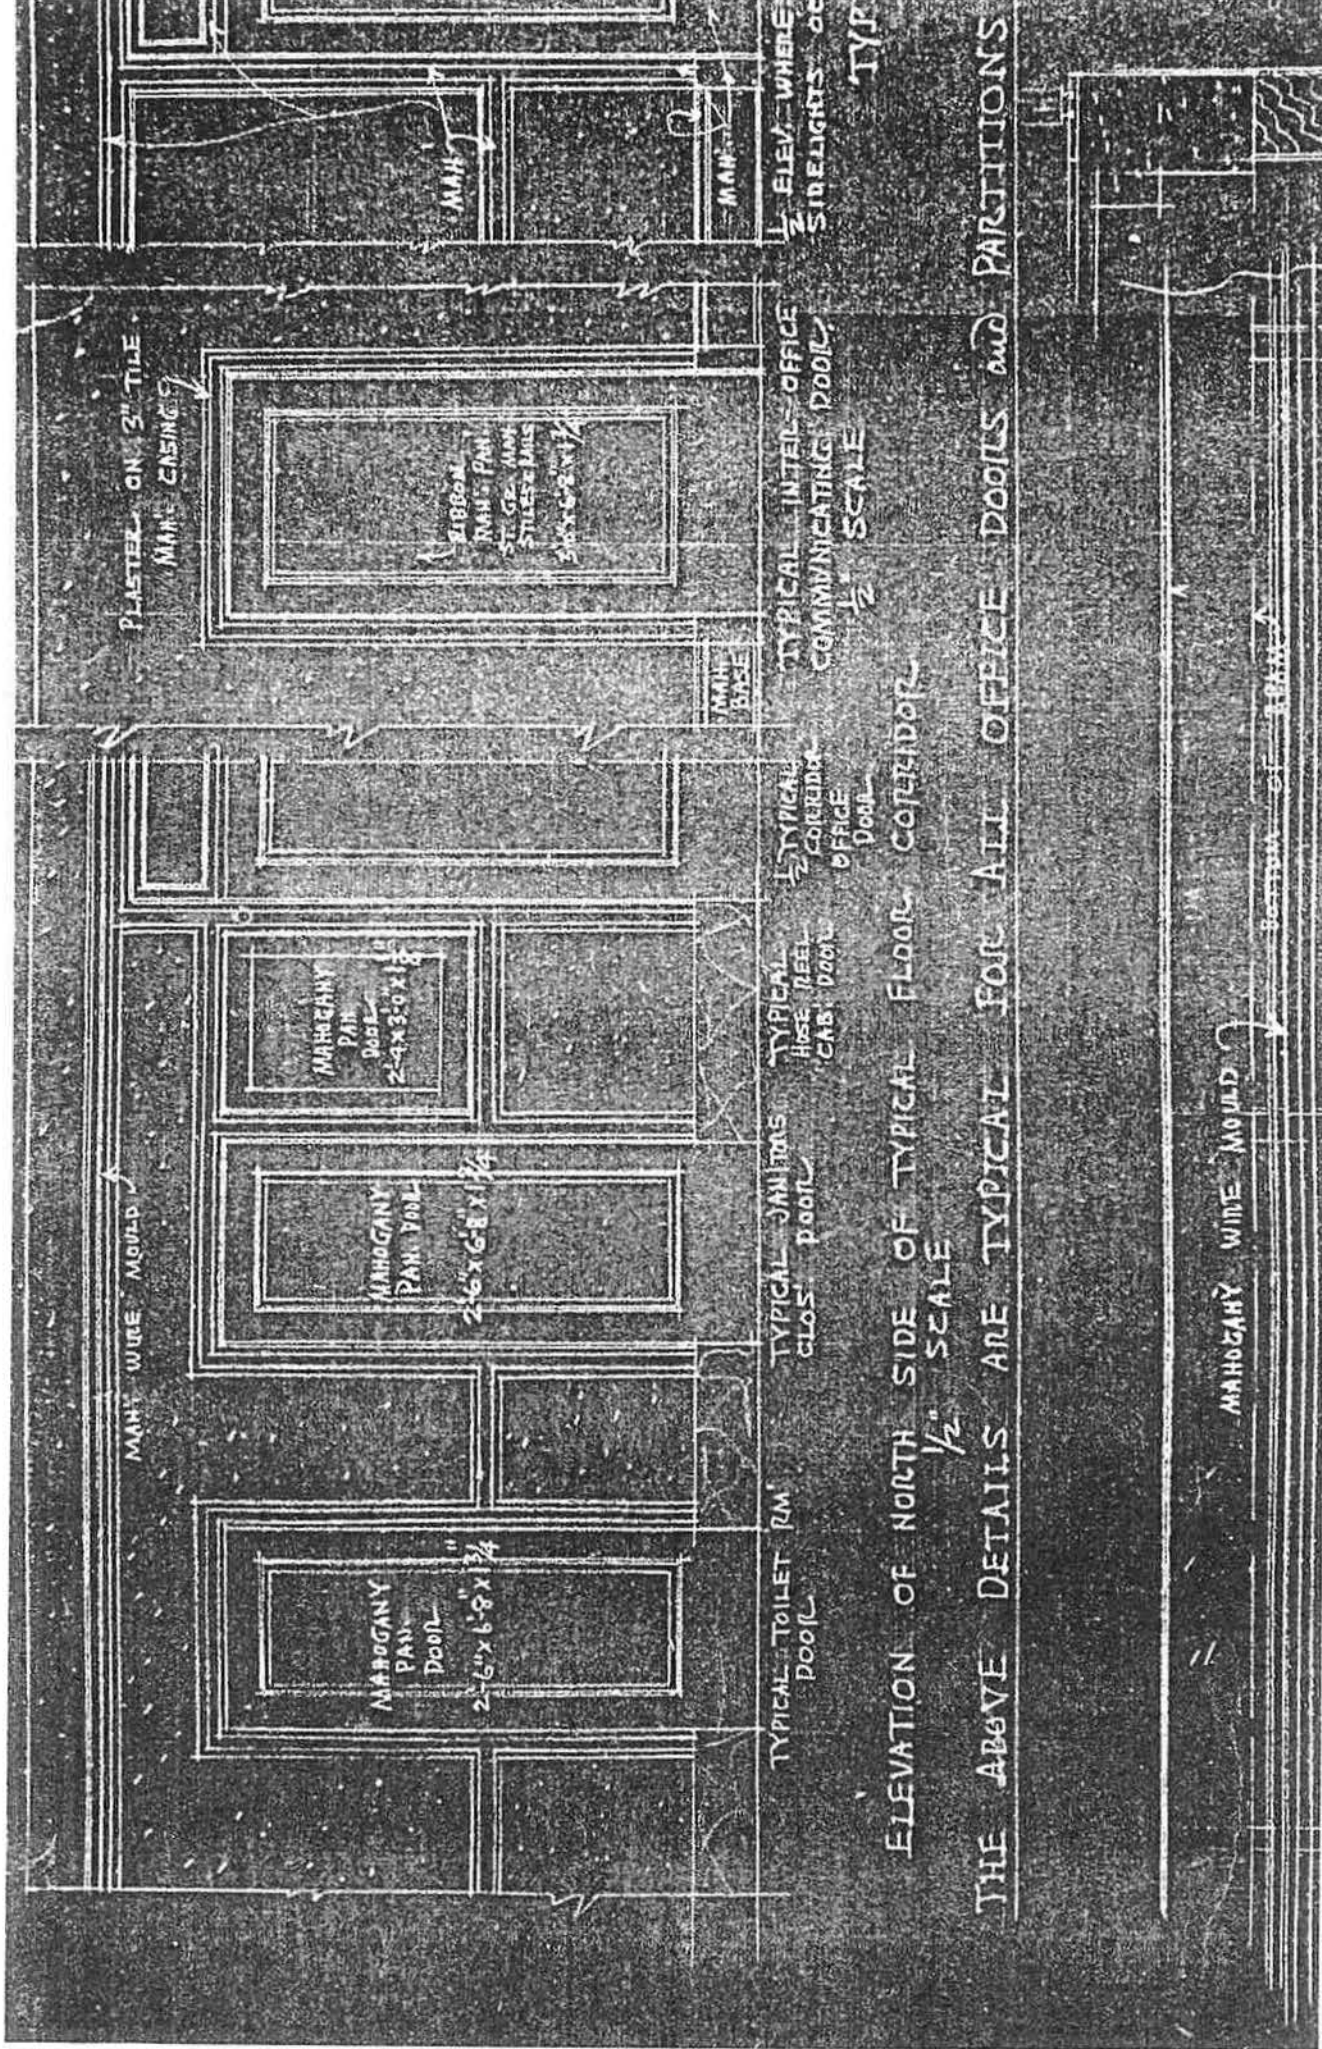 MAH'Y WIRE MOULD
PLASTER ON 3" TILE
MAH. CASING
MAHOGANY
PAN.
DOOR
2'-6" x 6'-8" x 1 3/4"
MAHOGANY
PAN. DOOR
2'-6" x 6'-8" x 1 3/4
MAHOGANY
PAN.
DOOR
RIBBON
MAH. PAN.
ST. GR. MAH.
STILES & RAILS
MAH.
BASE
MAH.
MAH.
TYPICAL TOILET RM.
DOOR
TYPICAL JANITORS
CLOS. DOOR
TYPICAL
HOSE REEL
CAB. DOOR
1/2 TYPICAL
CORRIDOR
OFFICE
DOOR
TYPICAL INTER-OFFICE
COMMUNICATING DOOR
1/2" SCALE
1/2 ELEV. WHERE
SIDELIGHTS OC
TYP
ELEVATION OF NORTH SIDE OF TYPICAL FLOOR CORRIDOR
1/2" SCALE
THE ABOVE DETAILS ARE TYPICAL FOR ALL OFFICE DOORS and PARTITIONS
MAHOGANY WIRE MOULD
BOTTOM OF BEAM